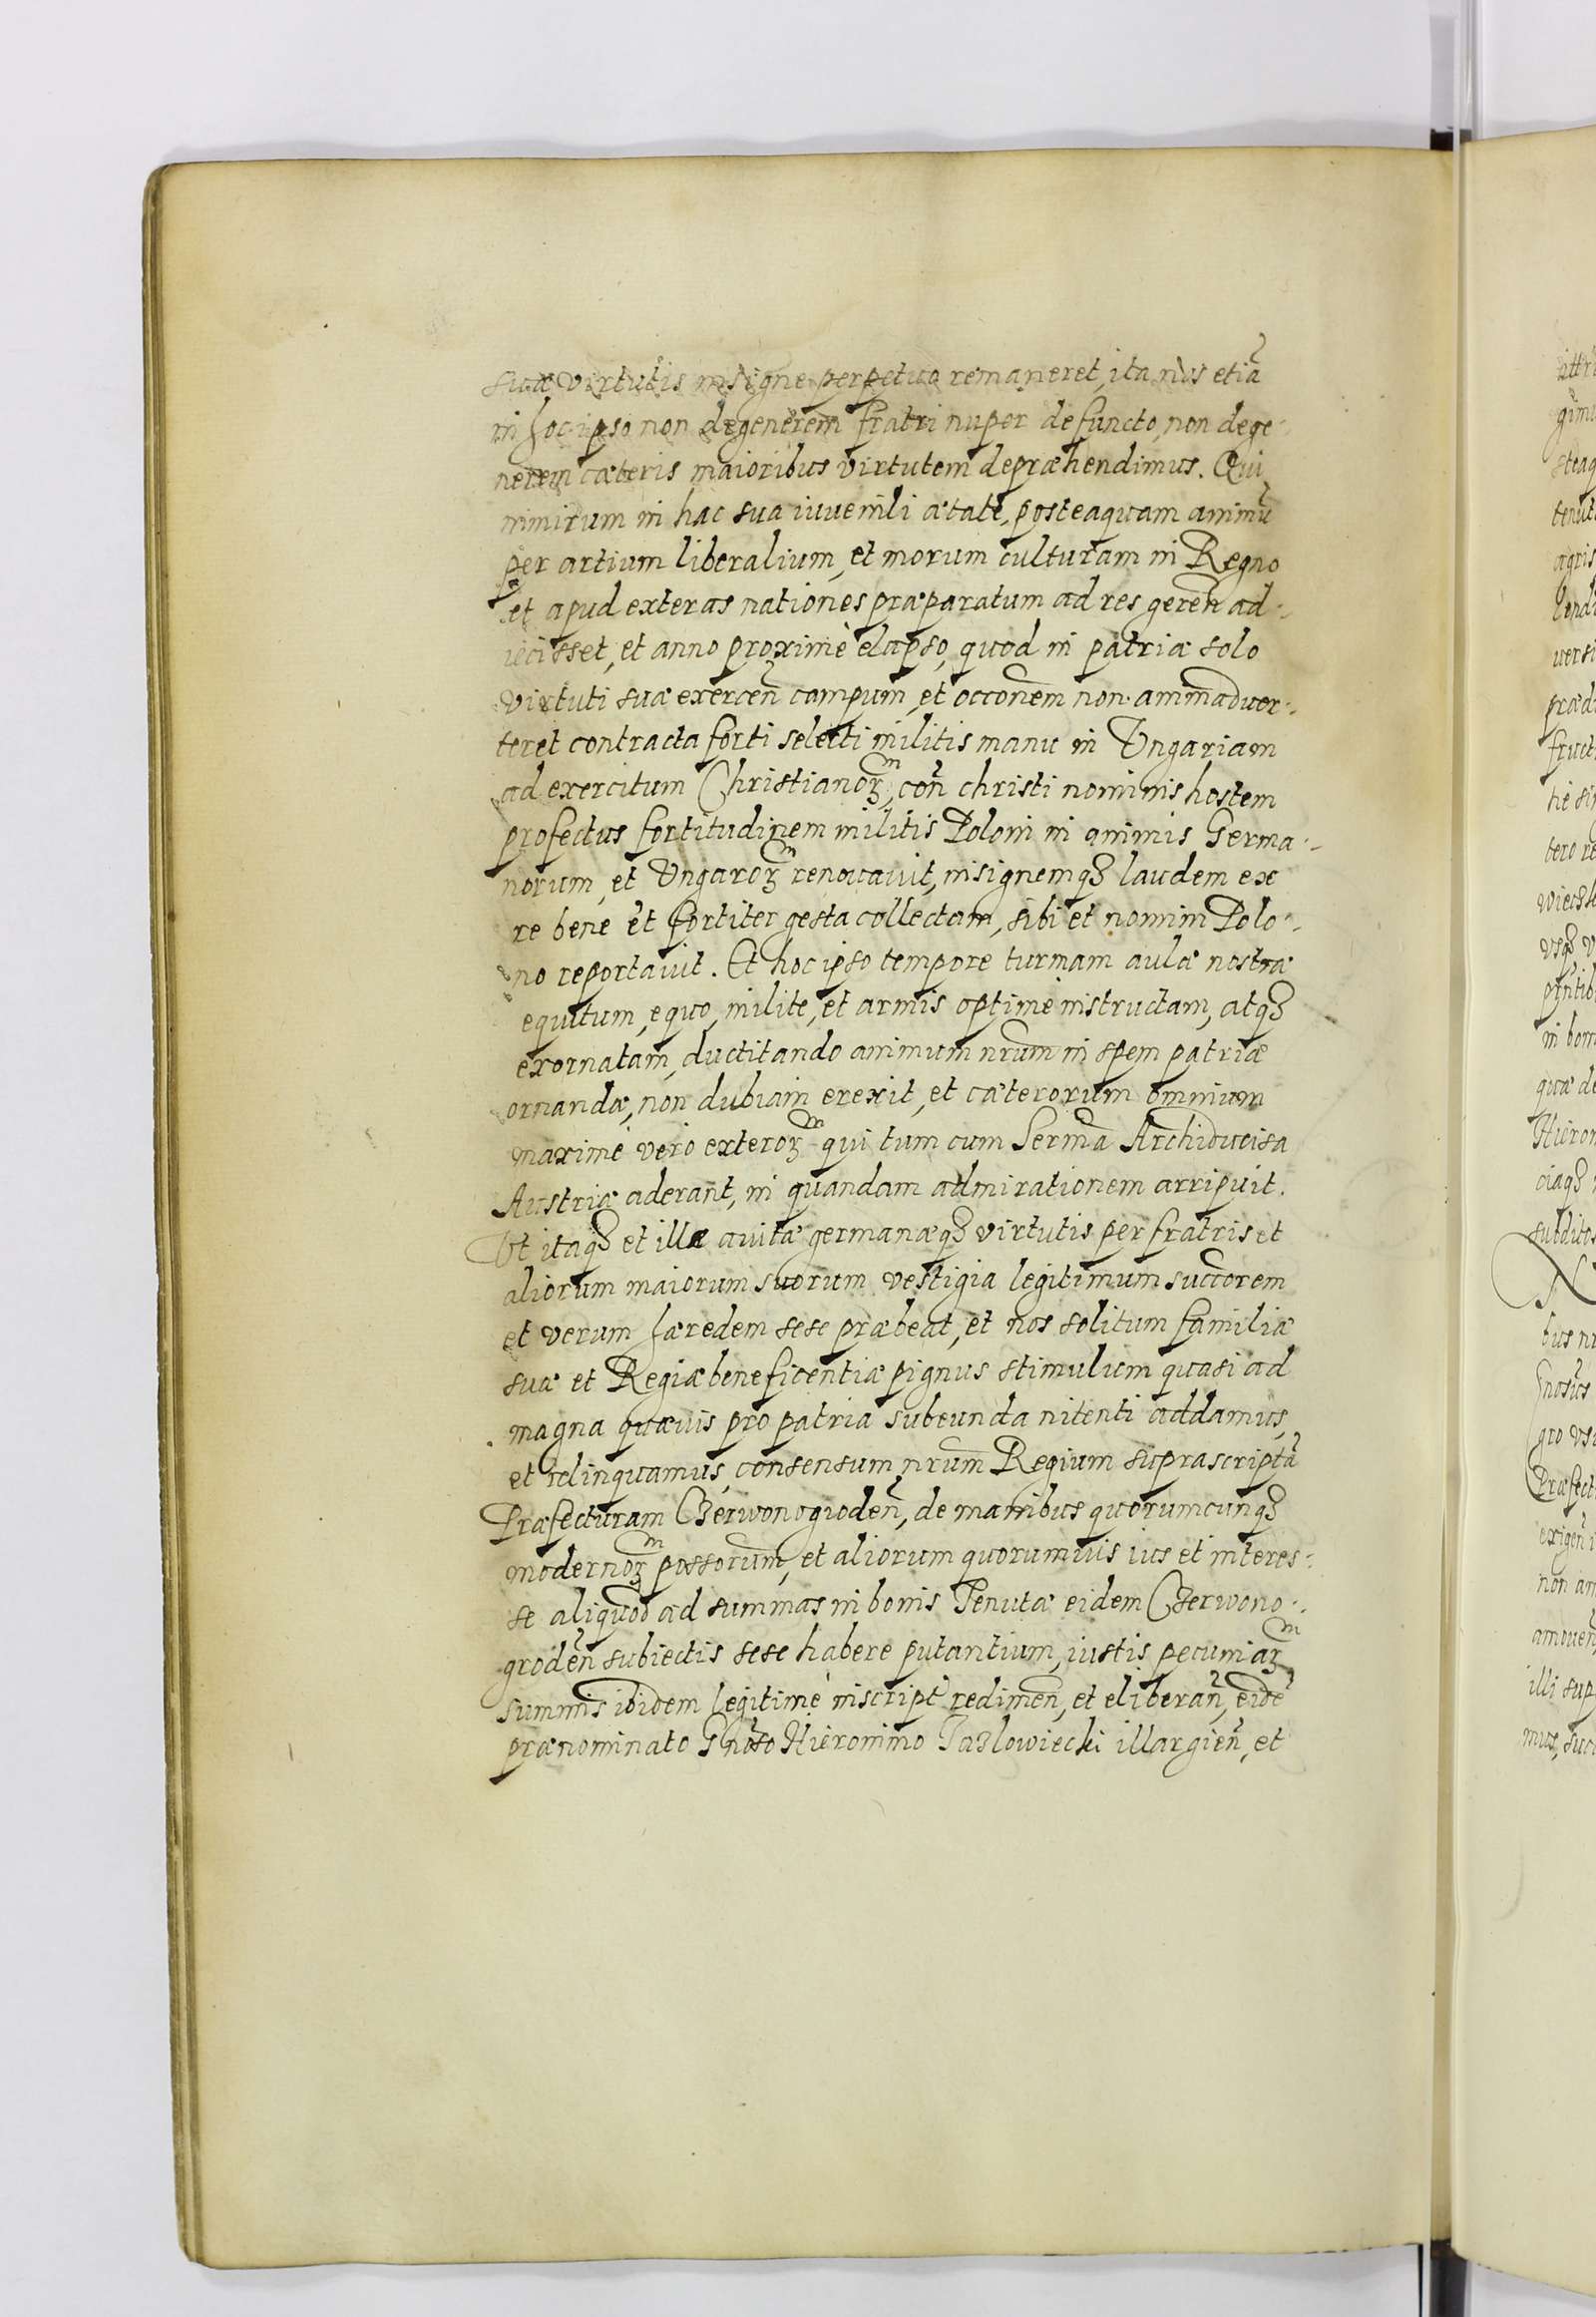 suæ virtutis insigne perpetuo remaneret, ita nos etiã
in hoc ipso non degenerem fratri nuper defuncto, non dege-
nerem cæteris maioribus virtutem depræhendimus. Qui
nimirum in hac sua iuvenili ætate, posteaquam animũ
per artium liberalium, et morum culturam in Regno
et apud exteras nationes præparatum ad res gereñ ad-
iecisset, et anno proximè elapso, quod in patriæ solo
virtuti suæ exerceñ campum, et occonem non animaduer-
teret contracta forti selecti militis manu in Ungariam
ad exercitum Christianorꝫm, coñ christi nominis hostem
profectus fortitudinem militis Poloni in animis Germa-
norum, et Ungarorꝫm renouauit, insignemqꝫ laudem ex
re bene et fortiter gesta collectam, sibi et nomini Polo-
no reportauit. Et hoc ipso tempore turmam aulæ nostræ
equitum, equo, milite, et armis optimè instructam, atqꝫ
exornatam, ductitando animum nrum in spem patriæ
ornandæ, non dubiam erexit, et cæterorum omnium
maximè vero exterorꝫm qui tum cum Serma Archiducissa
Austriæ aderant, in quandam admirationem arripuit.
Vt itaqꝫ et illæ auitæ germanæqꝫ virtutis per fratris et
aliorum maiorum suorum vestigia legitimum succorem
et verum hæredem sese præbeat, et nos solitum familiæ
suæ et Regiæ beneficentiæ pignus stimulum quasi ad
magna quævis pro patria subeunda nitenti addamus,
et relinquamus, consensum nrum Regium suprascriptã
Præfecturam Czerwonogrodeñ, de manibus quorumcunqꝫ
modernorꝫm possorum, et aliorum quorumuis ius et interes-
se aliquod ad summas in bonis Tenutæ eidem Czerwono-
grodeñ subiectis sese habere putantium, iustis pecuniarꝫm
summis ibidem legitimè inscript redimeñ, et eliberañ, eidẽ
prænominato Gnoso Hieronimo Jazlowiecki illargieñ, et